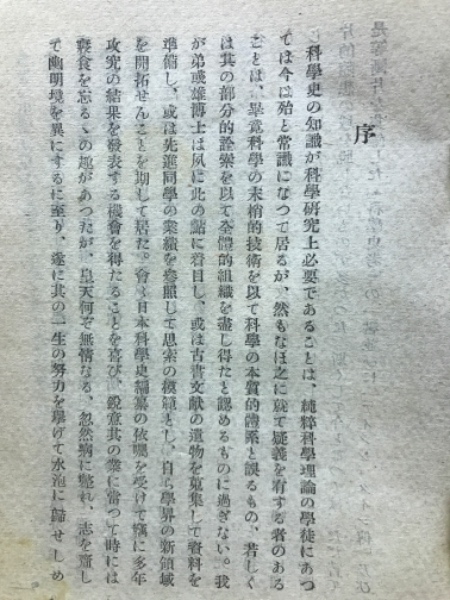 序
科學史の知識が科學研究上必要であることは、純粹科學理論の學徒にあつ
ては今は殆と常識になつて居るが、然もなほ之に就て疑義を有する者のある
ことは、畢竟科學の末梢的技術を以て科學の本質的體系と誤るもの、若しく
は其の部分的詮索を以て全體的組織を盡し得たと認めるものに過ぎない。我
が弟彧雄博士は夙に此の點に着目し、或は古書文献の遺物を蒐集して資料を
準備し、或は先進同學の業績を參照して思索の模範とし、自ら學界の新領域
を開拓せんことを期して居た。會〻日本科學史編纂の依囑を受けて窃に多年
攻究の結果を發表する機會を得たることを喜び、鋭意其の業に當つて時には
寢食を忘るゝの趣があつたが、皇天何ぞ無情なる、忽然病に斃れ、志を齎し
て幽明境を異にするに至り、遂に其の一生の努力を擧げて水泡に歸せしめ